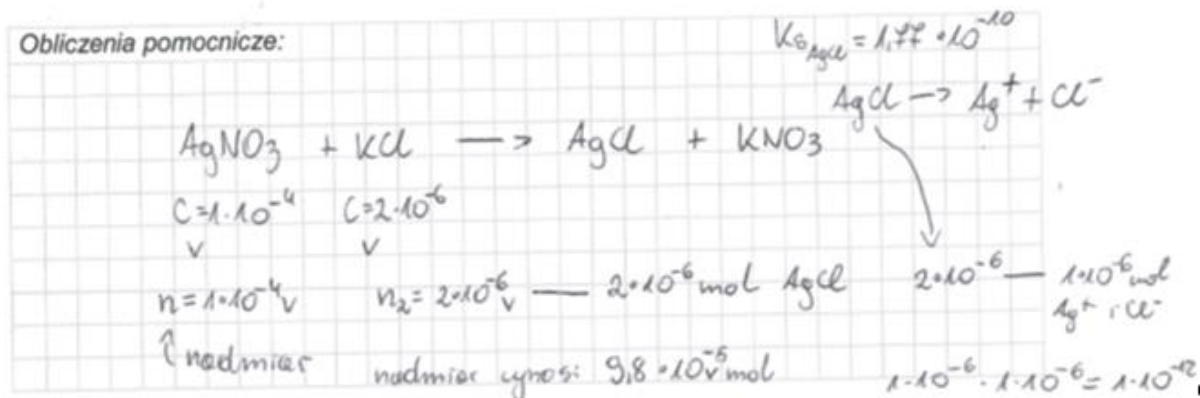 Obliczenia pomocnicze:
Ks AgCl = 1,77 • 10⁻¹⁰
AgCl → Ag⁺ + Cl⁻
AgNO3 + KCl → AgCl + KNO3
C=1·10⁻⁴ C=2·10⁻⁶
v v
n=1·10⁻⁴v n₂= 2·10⁻⁶v — 2·10⁻⁶ mol AgCl 2·10⁻⁶ — 1·10⁻⁶ mol
Ag⁺ i Cl⁻
↑ nadmiar nadmiar wynosi 9,8 · 10⁻⁵v mol 1·10⁻⁶ · 1·10⁻⁶ = 1·10⁻¹²